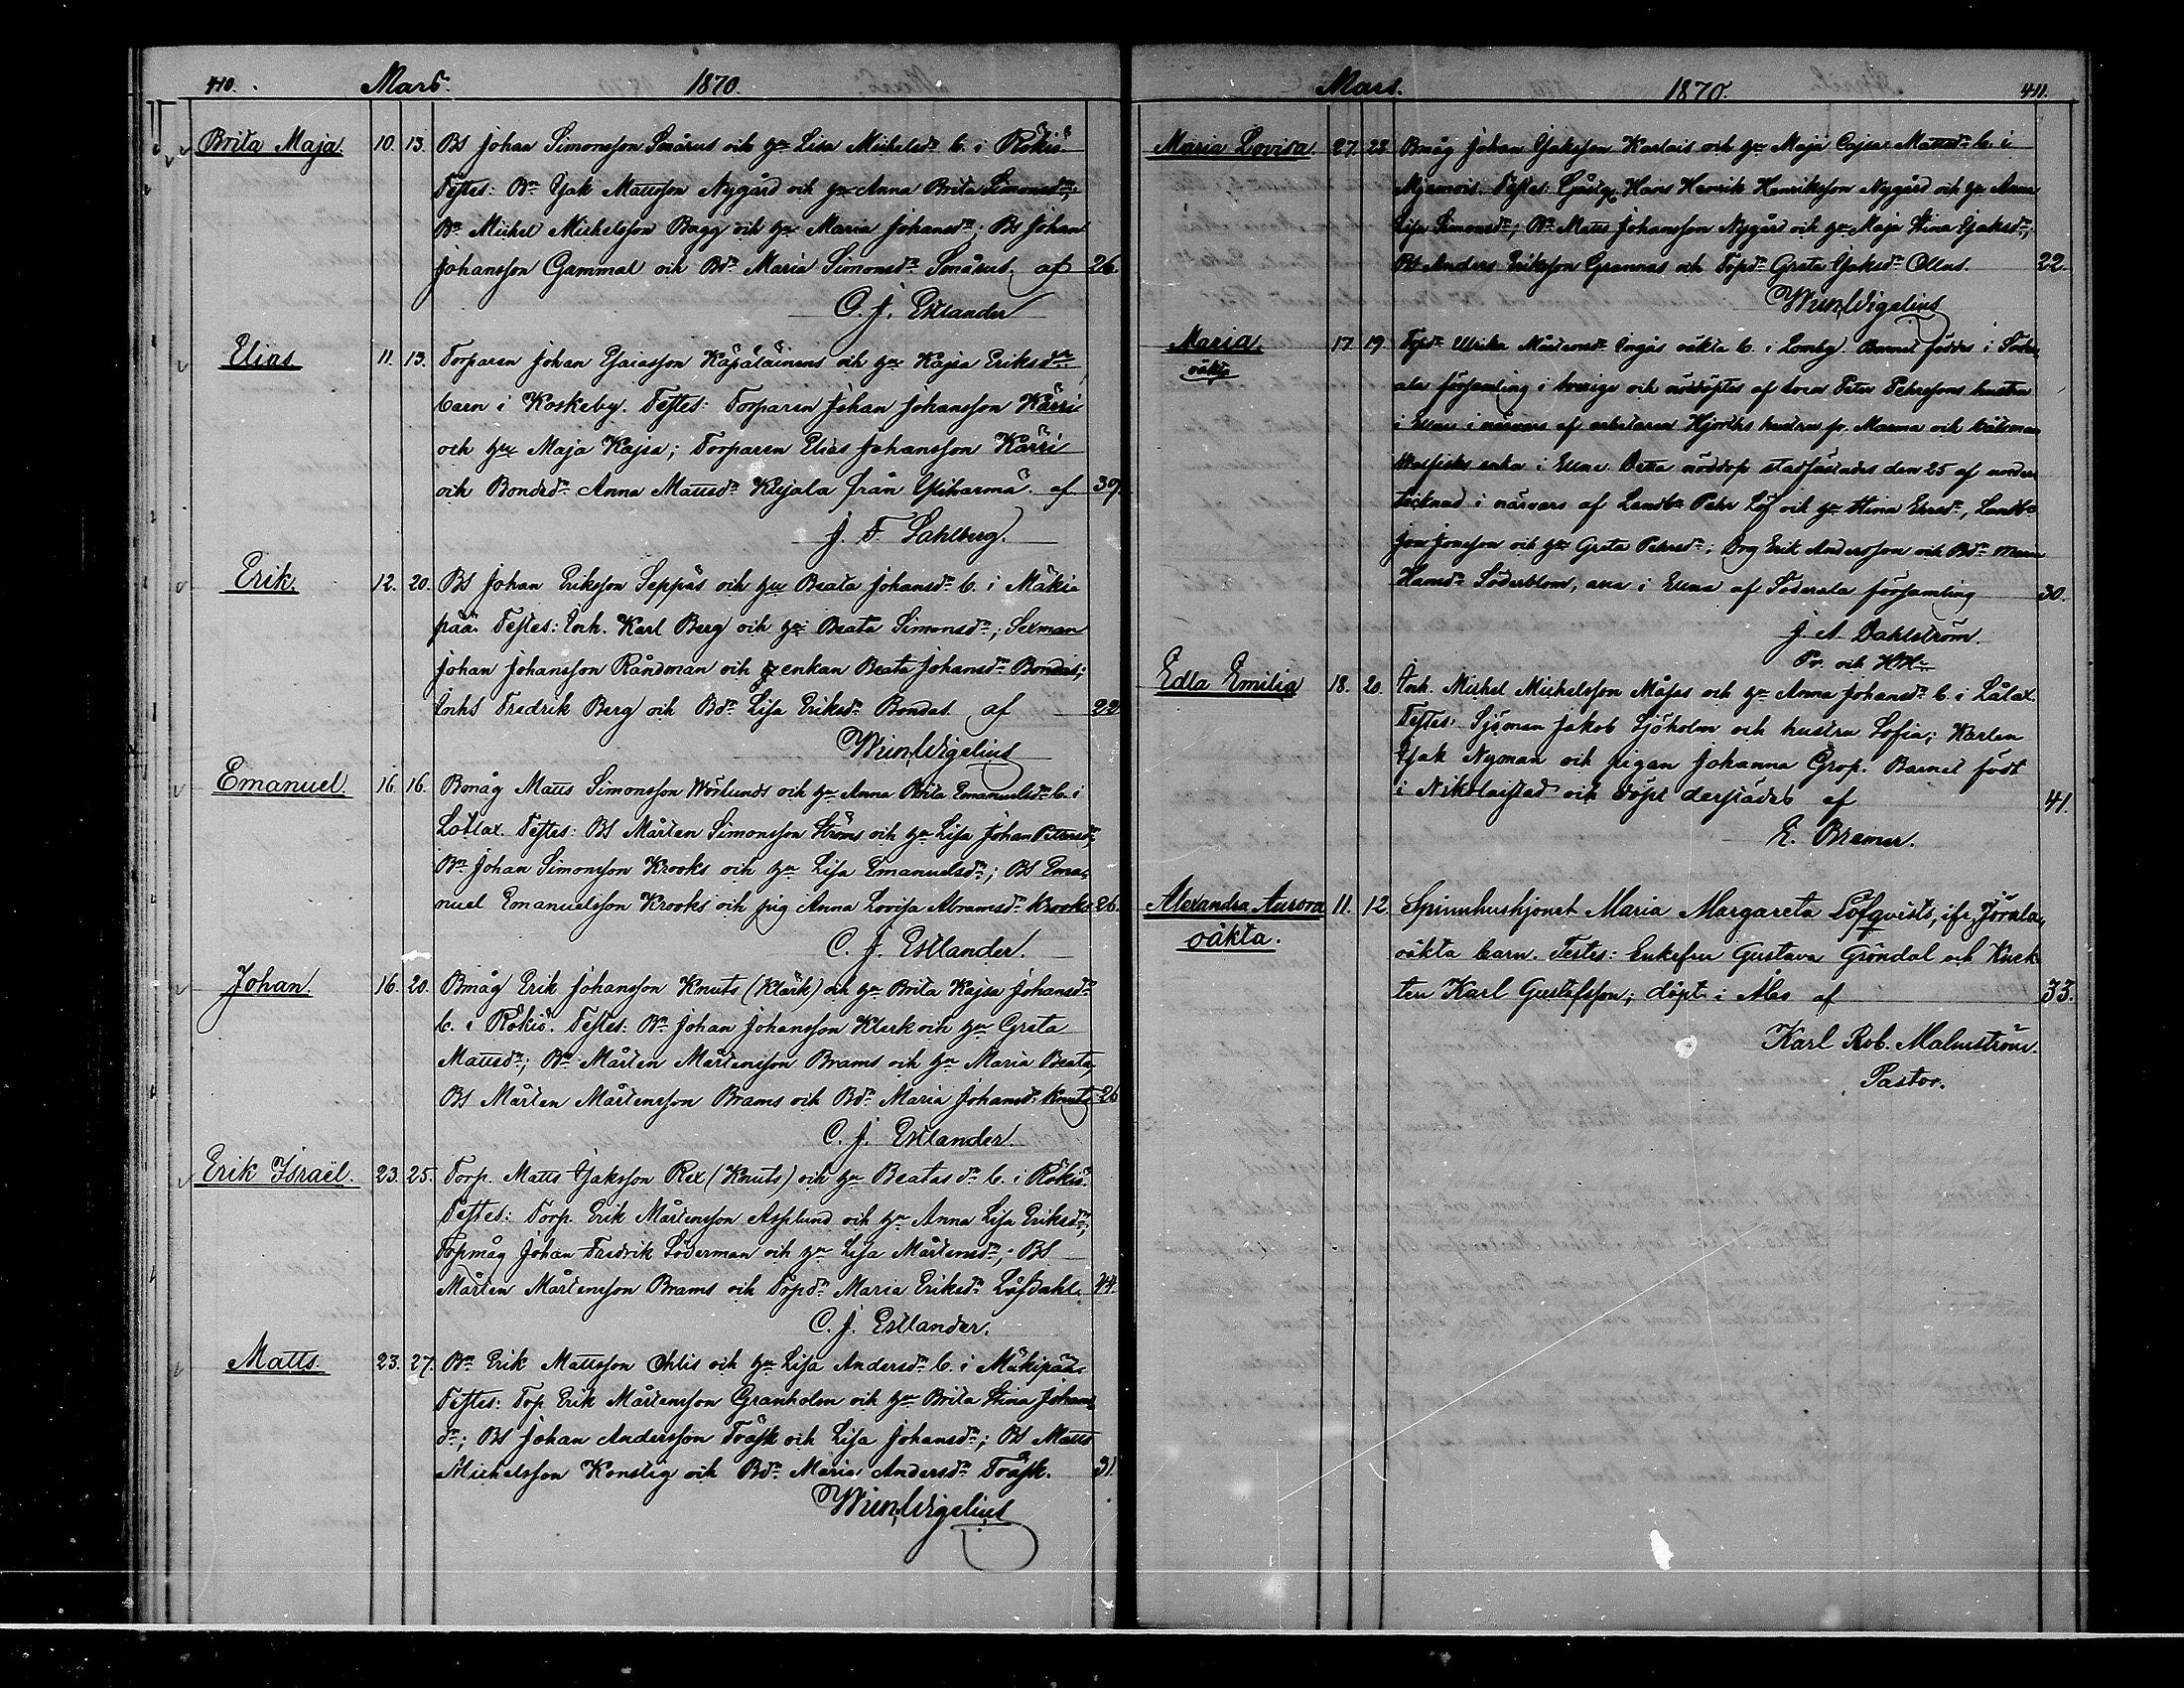 410. Mars. 1870.
Brita Maja. 10. 13. BS Johan Simonsson Smårus och hu Lisa Michelsdr b. i Rökiö.
Testes: Bn Isak Mattsson Nygård och hu Anna Brita Simonsdr;
Bn Michel Michelsson Bagg och hu Maria Johansdr; BS Johan
Johansson Gammal och Bdr Maria Simonsdr Smårus. af 26.
C. J. Estlander
Elias. 11. 13. Torparen Johan Esaiasson Käpäläinens och hu Kajsa Eriksdr
barn i Koskeby. Testes: Torparen Johan Johansson Kärri
och hu Maja Kajsa; Torparen Elias Johansson Kärri
och Bondedr Anna Mattsdr Klejala från Ylihärmä. af 39.
J. F. Sahlberg.
Erik. 12. 20. BS Johan Eriksson Seppäs och hu Beata Johansdr b. i Mäkiä
pää. Testes: Inh. Karl Berg och hu Beata Simonsdr; Sexman
Johan Johansson Råndman och enkan Beata Johansdr Bondas;
InhS Fredrik Berg och Bdr Lisa Eriksdr Bondas. af 22
Wnn Wigelius
Emanuel. 16. 16. Bmåg Matts Simonsson Wöstunds och hu Anna Brita Emanuelsdr b. i
Lotlax. Testes: BS Mårten Simonsson Ströms och hu Lisa Johan Pettersdr,
Bn Johan Simonsson Krooks och hu Lisa Emanuelsdr; BS Ema-
nuel Emanuelsson Krooks och pig Anna Lovisa Abramsdr Krooks 26.
C. J. Estlander.
Johan. 16. 20. Bmåg Erik Johansson Knuts (Klärk) och hu Brita Kajsa Johansdr
b. i Rökiö. Testes: Bn Johan Johansson Klerk och hu Greta
Mattsdr; Bn Mårten Mårtensson Brams och hu Maria Beata,
BS Mårten Mårtensson Brams och Bdr Maria Johansdr Knuts 26
C. J. Estlander.
Erik Israël. 23. 25. Torp. Matts Isaksson Rex (Knuts) och hu Beatas dr b. i Rökiö.
Testes: Torp. Erik Mårtensson Asplund och hu Anna Lisa Eriksdr;
Topmåg Johan Fredrik Söderman och hu Lisa Mårtensdr; BS
Mårten Mårtensson Brams och Topdr Maria Eriksdr Löfdahl. 44.
C. J. Estlander.
Matts. 23. 27. Bn Erik Mattsson Ohlis och hu Lisa Andersdr b. i Mäkipää.
Testes: Top Erik Mårtensson Granholm och hu Brita Stina Johans
dr; BS Johan Andersson Träsk och Lisa Johansdr; BS Matts
Michelsson Konstig och Bdr Maria Andersdr Träsk. 31.
Wnn Wigelius
Mars. 1870. 411.
Maria Lovisa 27. 28. Bmåg Johan Isaksson Karlais och hu Maja Cajsa Mattsdr b. i
Mjemois. Testes: Hans Henrik Henriksson Nygård och hu Anna
Lisa Simonsdr; Bn Matts Johansson Nygård och hu Maja Stina Isaksdr;
BS Anders Eriksson Grannas och Topdr Greta Isaksdr Ollus. 22.
Wnn Wigelius
Maria. 17. 19. Topdr Ulrika Mårtensdr Ingås oäkta b. i Lomby. Barnet föddes i Söder-
oäkta
ala församling i Sverige och nöddöptes af Peter Pehrssons hustru
i Ellne i närvaro af arbetaren Hjorths hustru fr. Marma och båtsman
Walfisks enka i Ellne. Detta nöddop stadfästades den 25 af under-
tecknad i närvaro af Landbn Pehr Löf och hu Stina Ersdr, Landbn
Jon Jonsson och hu Greta Pehrsdr; Drg Erik Andersson och Bdr Maria
Hansdr Söderblom, alla i Ellne af Söderala församling 30.
J. A. Dahlström.
Pr. och
Edla Emilia 18. 20. Inh. Michel Michelsson Måsas och hu Anna Johansdr b. i Lålax.
Testes: Sjöman Jakob Sjöholm och hustru Sofia; Karlen
Isak Nyman och pigan Johanna Grop. Barnet född
i Nikolaistad och döpt derstädes af 41.
E. Bremer.
Alexandra Aurora 11. 12. Spinnhushjonet Maria Margareta Löfqvists, ifr. Jörala,
oäkta.
oäkta barn. Testes: Enkefru Gustava Gröndal och Knek-
ten Karl Gustafsson; döpt i Åbo af 33.
Karl Rob. Malmström.
Pastor.